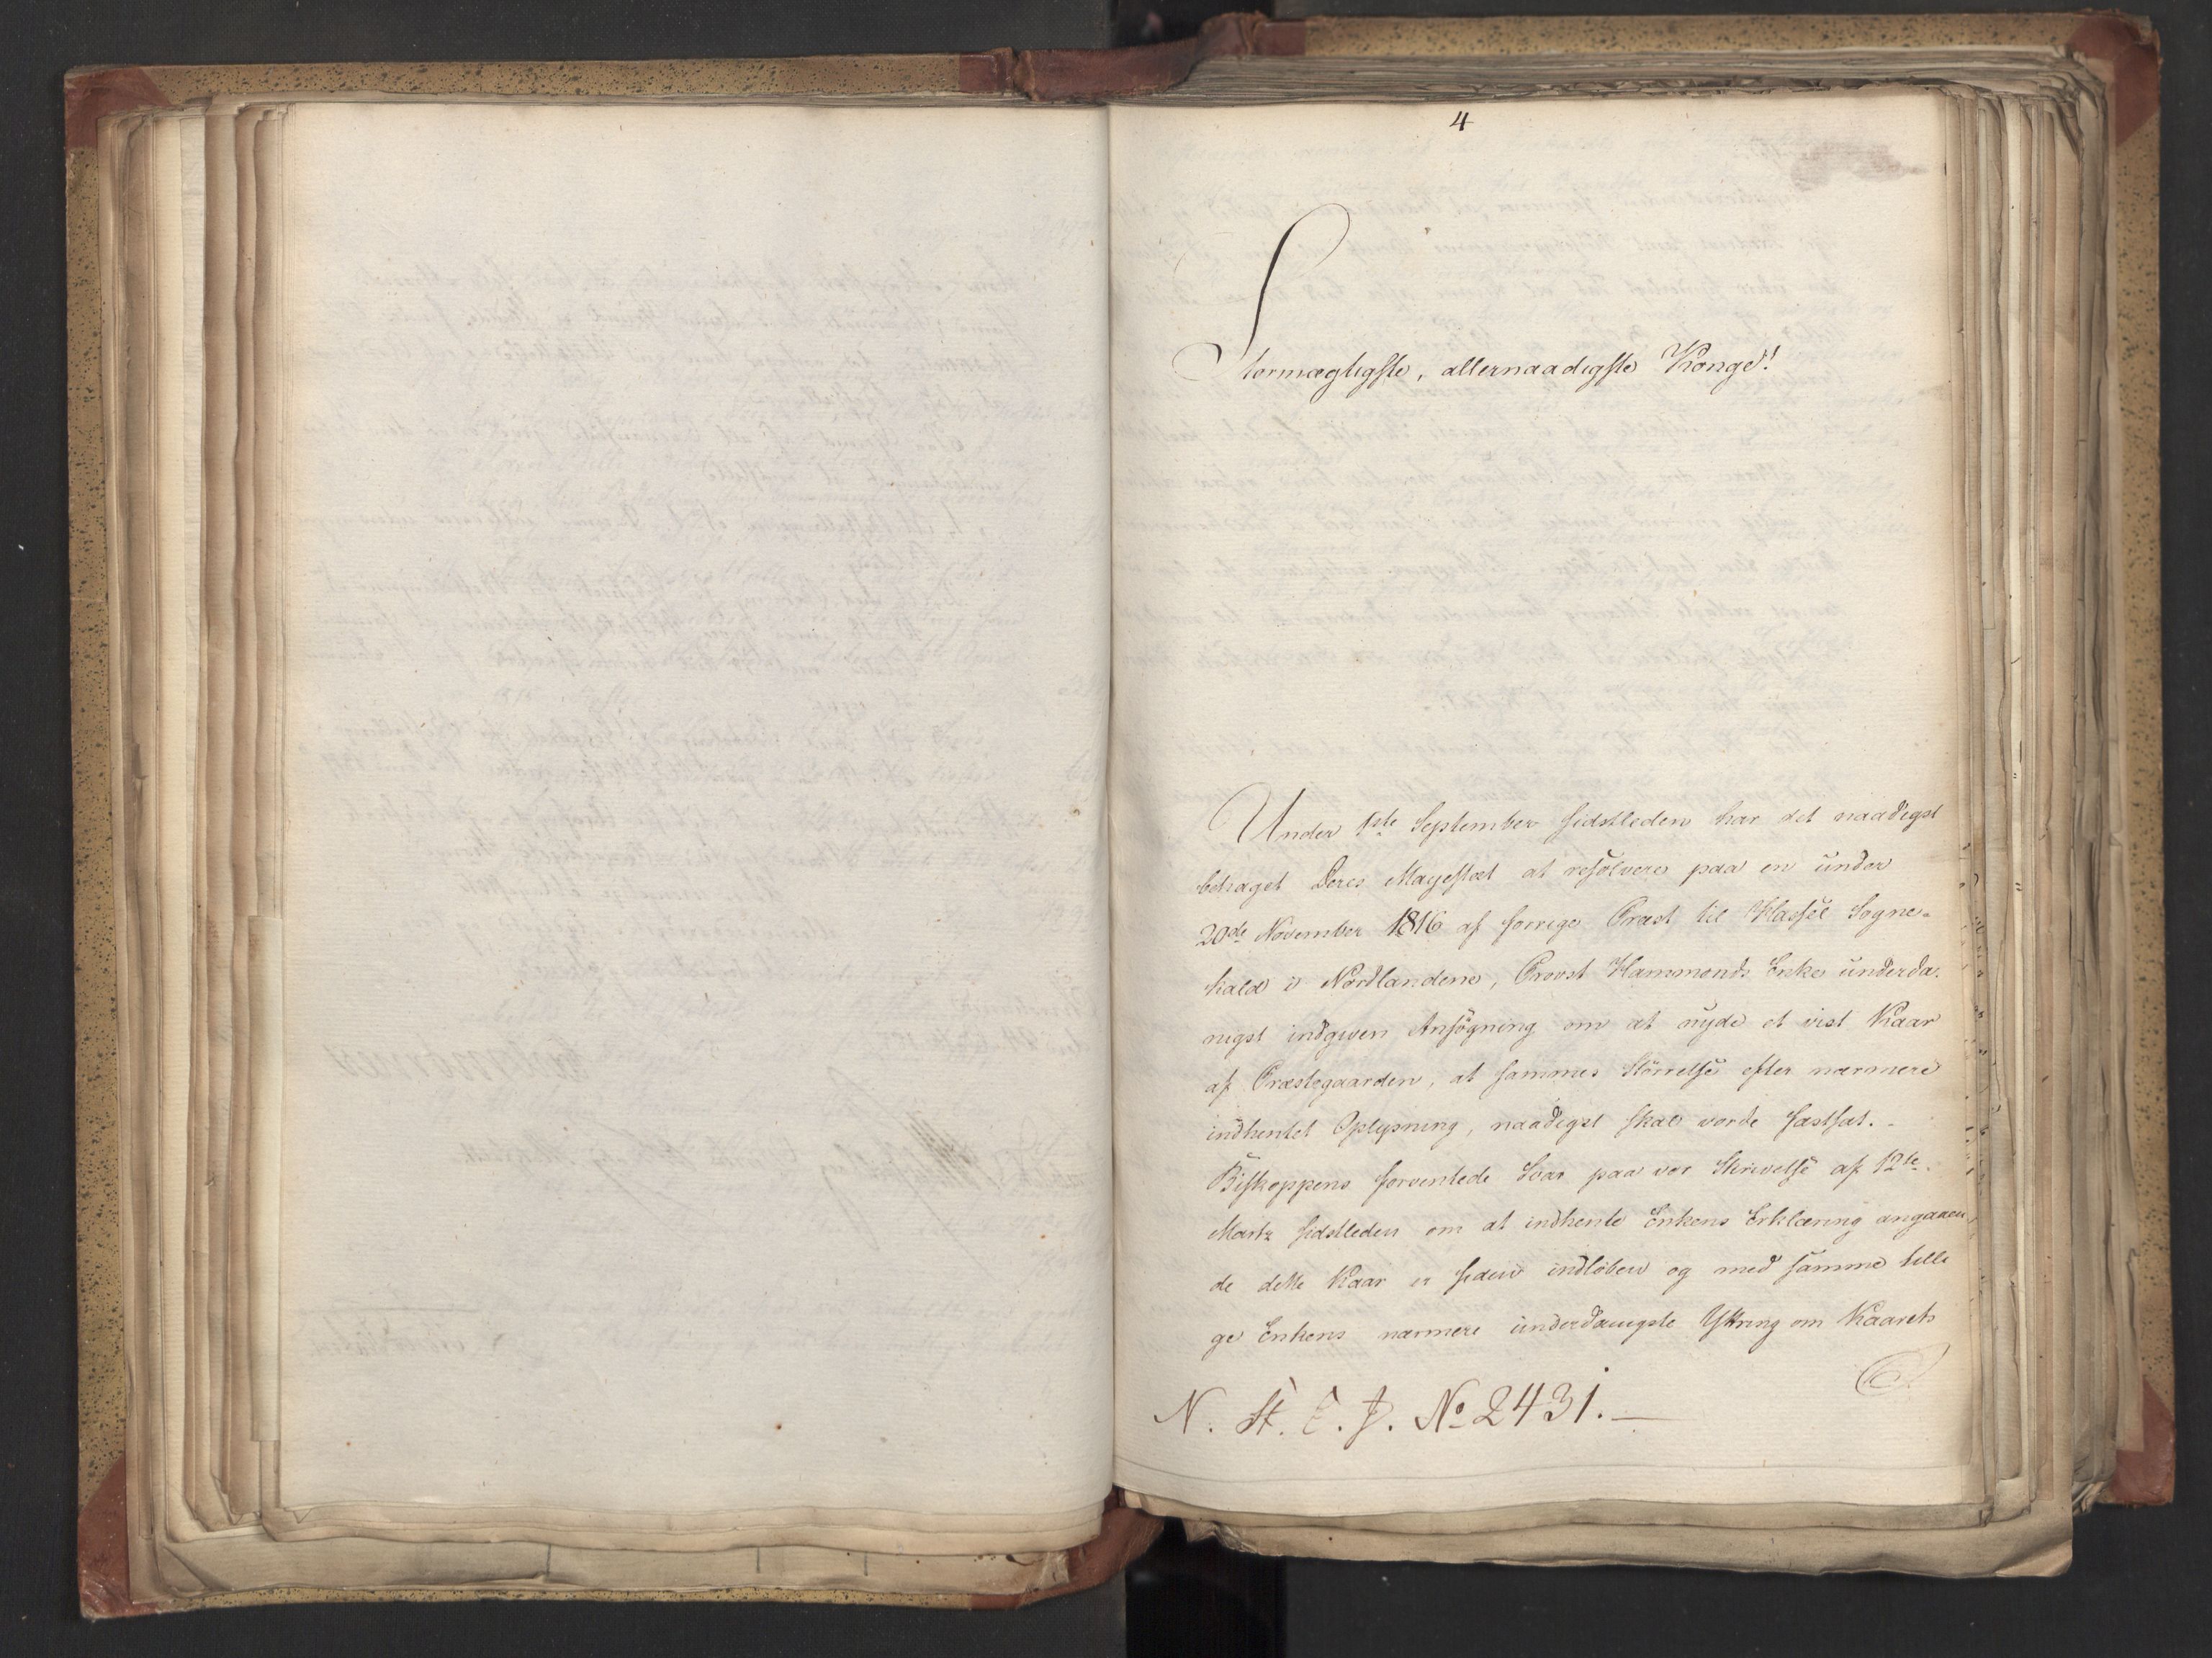 4
Stormægtigste, allernaadigste Konge!
Under 1ste September sidstleden har det naadigst
behaget Deres Majestæt at resolvere paa en under
20de November 1816 af forrige Præst til Hassel Sogne-
kald i Nordlandene, Provst Hammonds Enke underda-
nigst indgiven Ansøgning om at nyde et vist Kaar
af Præstegaarden, at sammes Størrelse efter nærmere
indhentet Oplysning, naadigst skal vorde fastsat. -
Biskoppens forventede Svar paa vor Skrivelse af 12te
Martz sidstleden om at indhente Enkens Erklæring angaaen
de dette Kaar er siden indløben og med samme tilli
ge Enkens nærmere underdanigste Yttring om Kaarets
N. St. C. J. No 2431. —